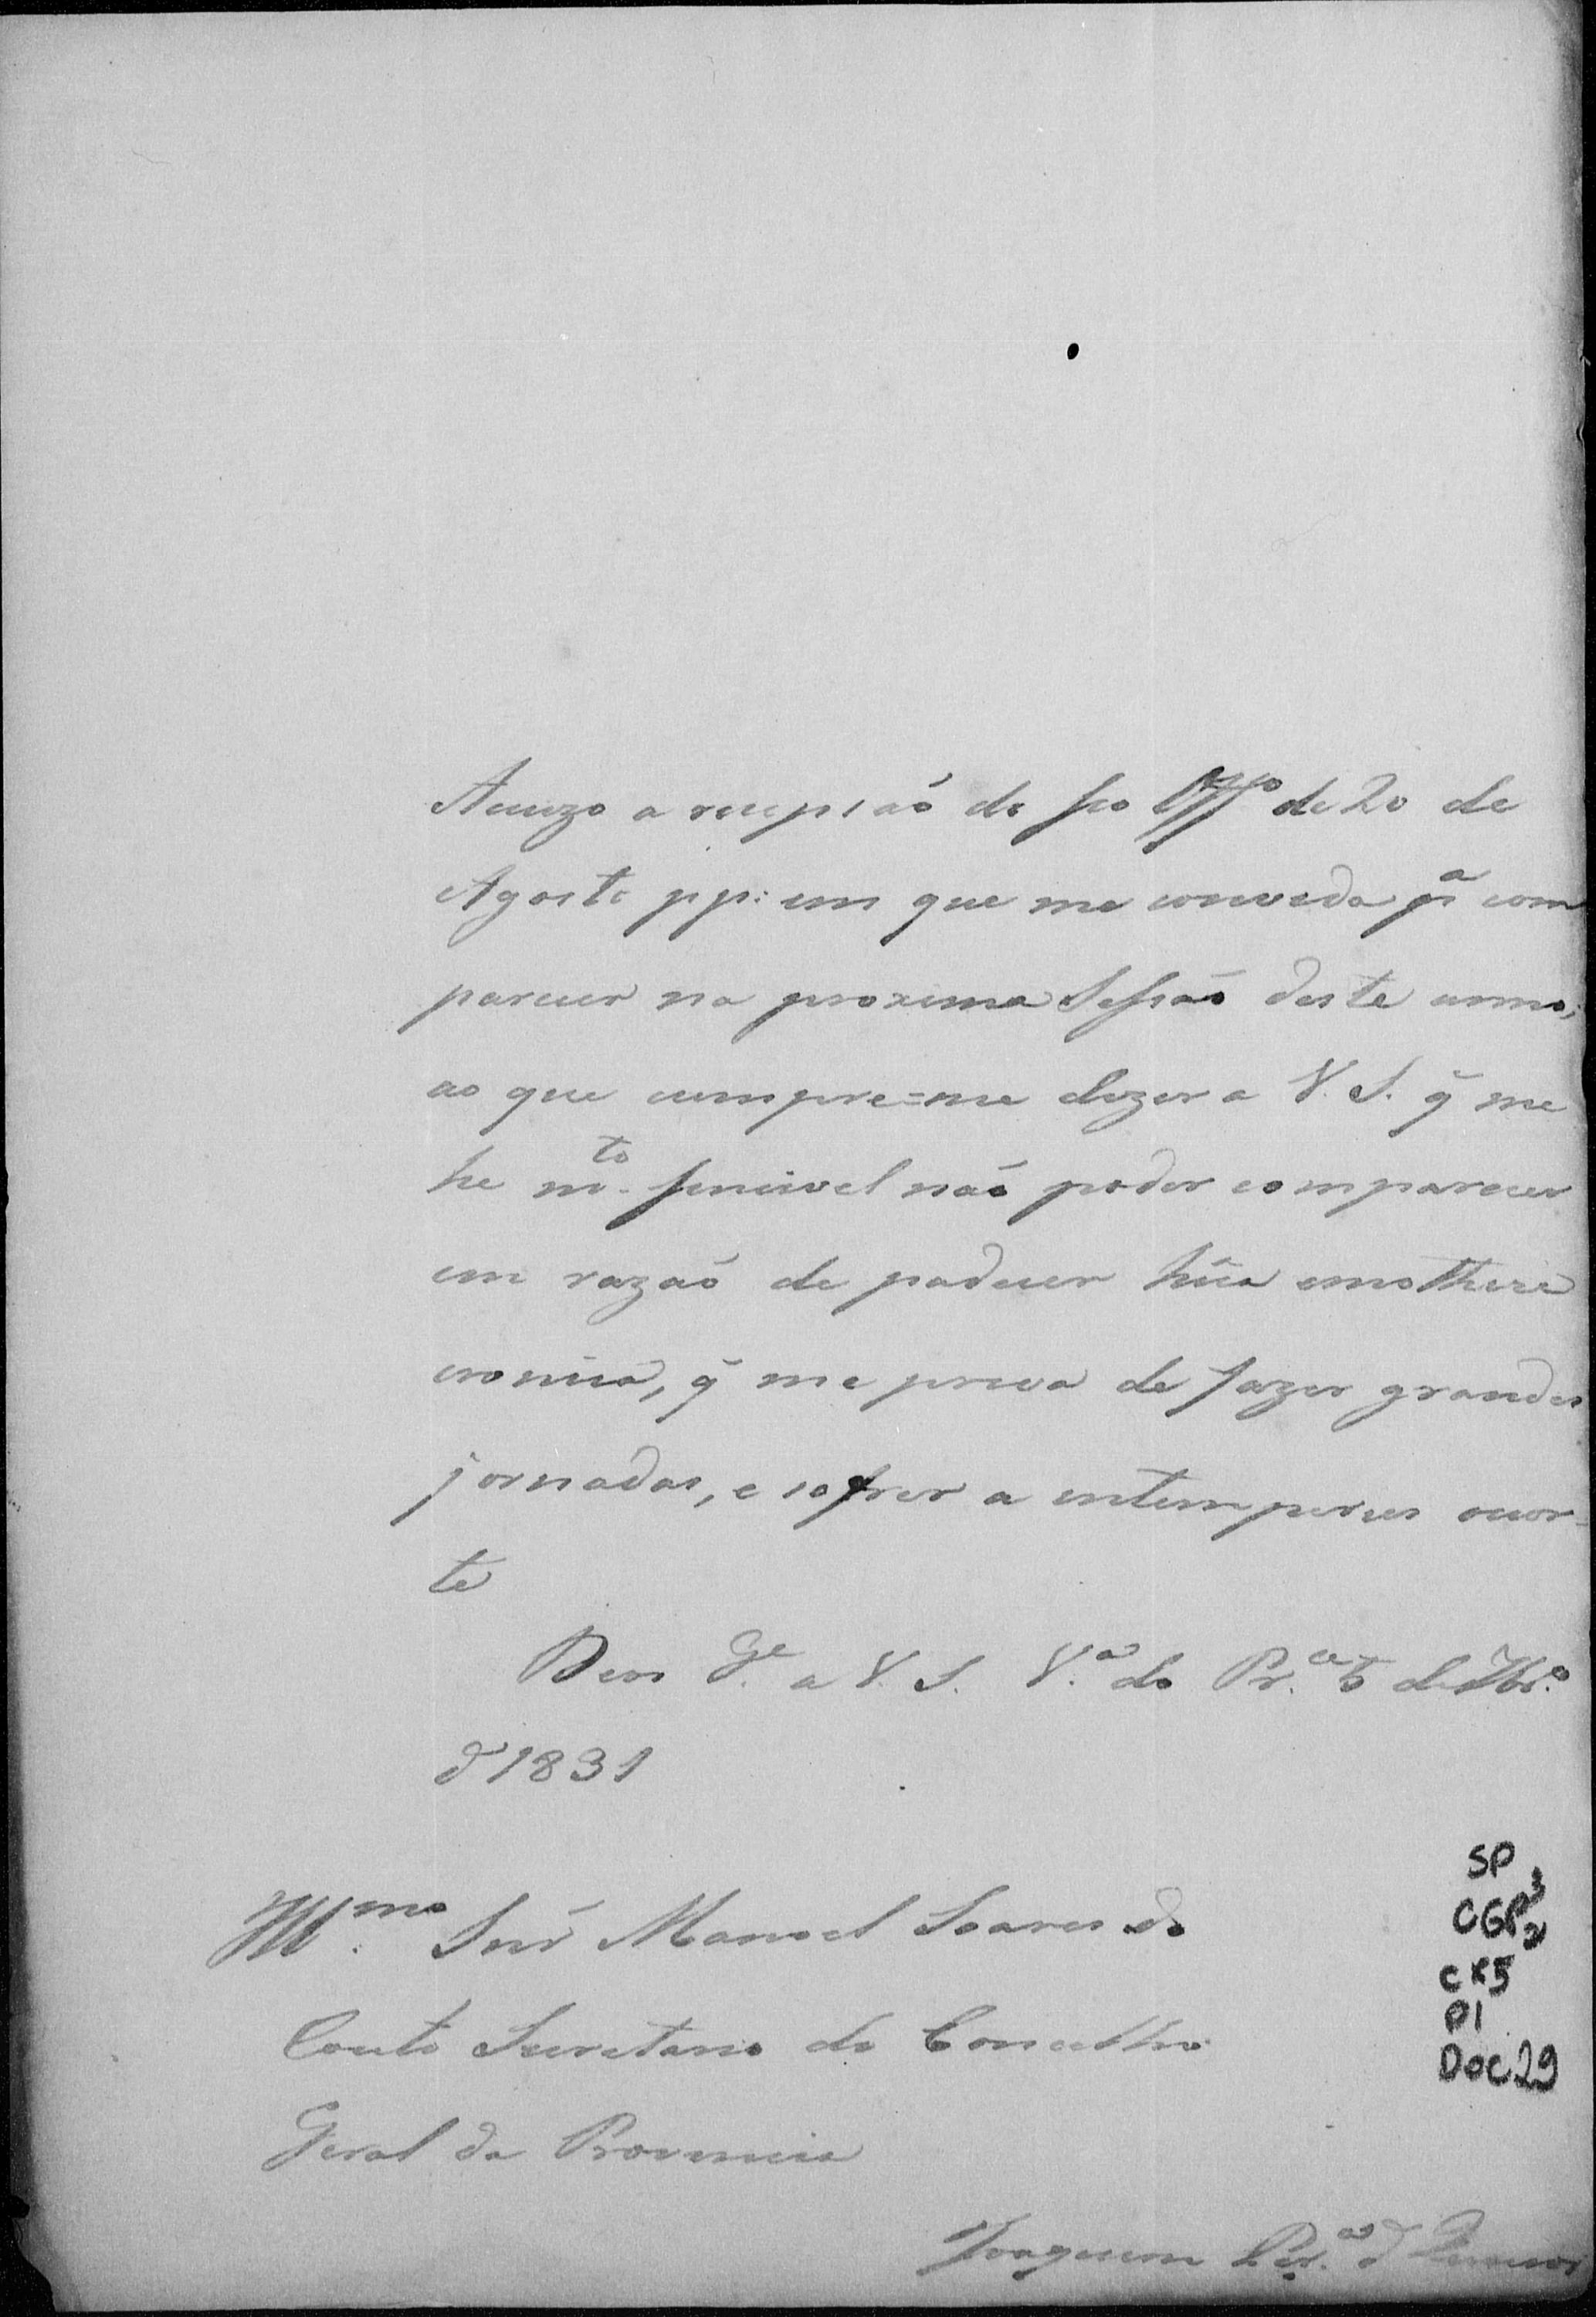 Acuzo a recepsaó do seo Offº de 20 de
Agosto pp: em que me conveda pª com
parecer na proxima Sessaó deste anno;
ao que cumpre=me dizer a V. S. q̃ me
he mto. sencivel naó poder comparecer
em razaó de padecer hũa
cronica, q̃ me priva de fazer grandes
jornadas, e sofrer a intemperies
te
Deos Ge. a V. S. Vª do Pr.ce 5 de 7br.º
d' 1831
Illmo. Snr Manoel Soares do
Couto Secretario do Concelho
Geral da Provincia
Joaquim
SP
CGP3
CX5
P1
DOC29